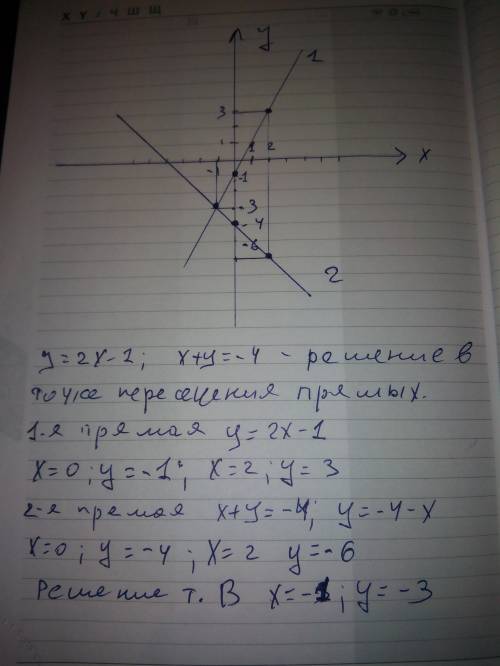 X Y / Ч Ш Щ
y
1
3
1
1 2
x
-1
-1
-3
-4
-6
2
y=2x-1; x+y=-4 - решение в
точке пересечения прямых.
1-я прямая y=2x-1
x=0; y=-1; x=2; y=3
2-я прямая x+y=-4; y=-4-x
x=0; y=-4; x=2 y=-6
Решение т. В x=-1; y=-3